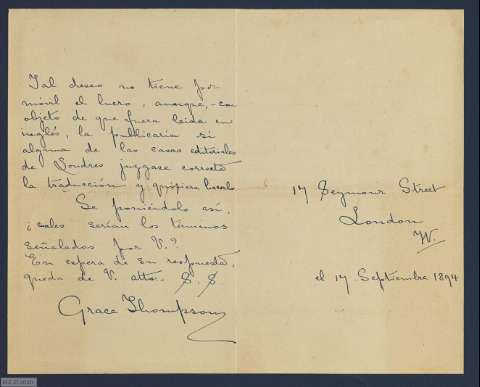 Tal deseo no tiene por
movil el lucro, aunque, con
objeto de que fuera leida en
inglés, la publicaria si
alguna de las casas editoriales
de Londres juzgase correcta
la traduccion y quisiera hacerlo
Se poniéndolo así,
¿cales serían los terminos
señalados por V.?
En espera de su respuesta,
queda de V. atta. S. S
Grace Thompson
17 Seymour Street
London
W.
el 17 Septiembre 1894